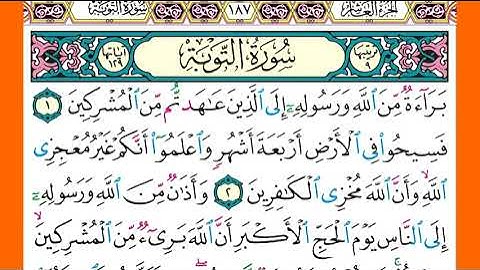 سورة التوبة ١٨٧ الجزء العاشر
ترتيبها ٩ سُورَةُ التَّوْبَةِ آياتها ١٢٩
بَرَآءَةٌ مِّنَ ٱللَّهِ وَرَسُولِهِۦٓ إِلَى ٱلَّذِينَ عَٰهَدتُّم مِّنَ ٱلْمُشْرِكِينَ ١
فَسِيحُوا۟ فِى ٱلْأَرْضِ أَرْبَعَةَ أَشْهُرٍ وَٱعْلَمُوٓا۟ أَنَّكُمْ غَيْرُ مُعْجِزِى
ٱللَّهِ وَأَنَّ ٱللَّهَ مُخْزِى ٱلْكَٰفِرِينَ ٢ وَأَذَٰنٌ مِّنَ ٱللَّهِ وَرَسُولِهِۦٓ
إِلَى ٱلنَّاسِ يَوْمَ ٱلْحَجِّ ٱلْأَكْبَرِ أَنَّ ٱللَّهَ بَرِىٓءٌ مِّنَ ٱلْمُشْرِكِينَ